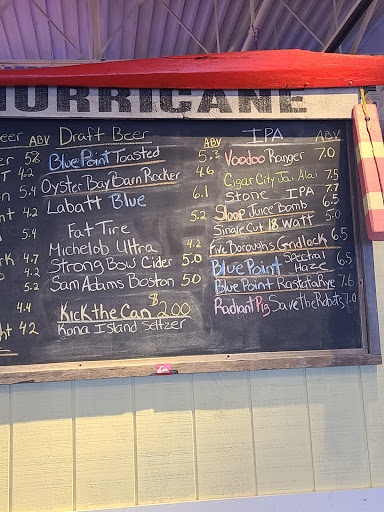 HURRICANE
eer ABV Draft Beer ABV IPA ABV
er 5% Blue Point Toasted 5. Voodoo Ranger 7.0
T 4.2 Oyster Bay Barn Rocker 4.6 Cigar City Jai Alai 7.5
on 5.4 Labatt Blue 6.1 Stone IPA 7.7
nt 4.2 Fat Tire 5.2 Sloop Juice Bomb 6.5
Single Cut 18 Watt 5.0
rk 4.7 Michelob Ultra 4.2 Five Boroughs Gridlock 6.5
4.2 Strong Bow Cider 5.0 Blue Point Spectral Haze 6.5
5.2 Sam Adams Boston 5.0 Blue Point Rastafa Rye 7.6
4.4 Kick the Can $2.00 Radiant Pig Save the Robots 7.0
ht 4.2 Kona Island Seltzer